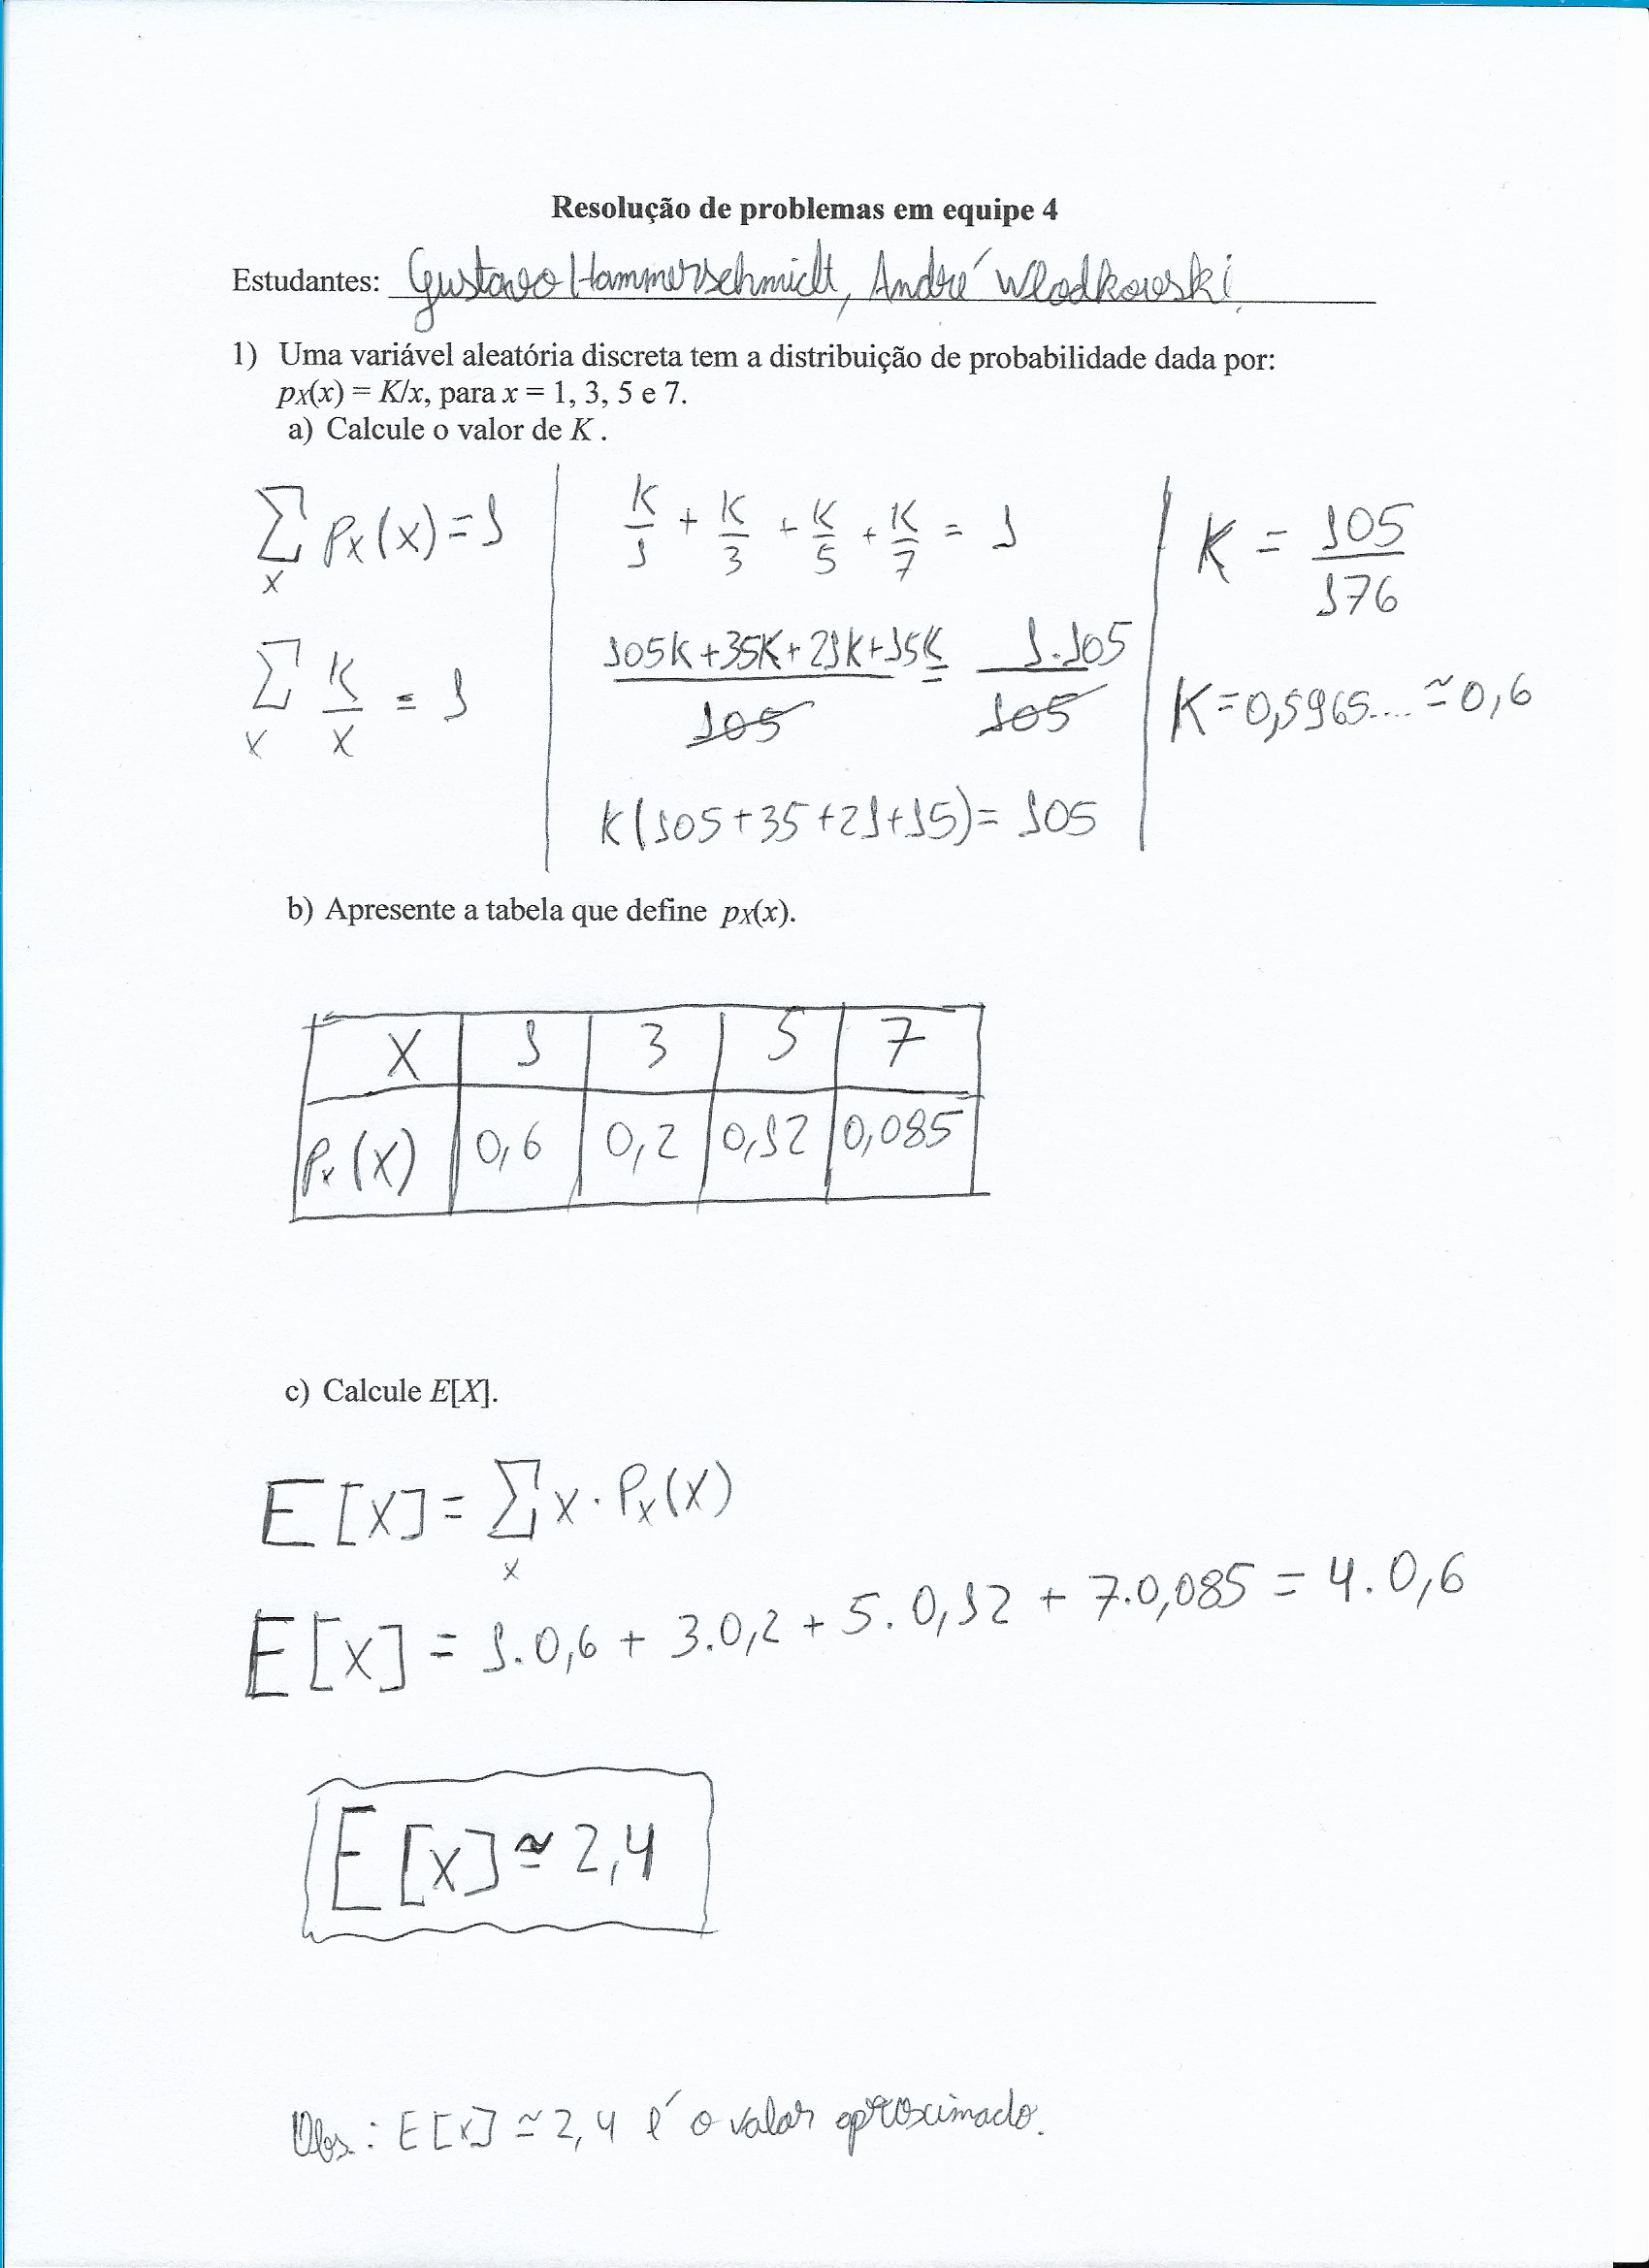 Resolução de problemas em equipe 4
Estudantes: Gustavo Hammerschmidt, André Wlodkowski.
1) Uma variável aleatória discreta tem a distribuição de probabilidade dada por:
pX(x) = K/x, para x = 1, 3, 5 e 7.
a) Calcule o valor de K .
∑x Px(x) = 1
∑x K/x = 1
K/1 + K/3 + K/5 + K/7 = 1
(105K+35K+21K+15K)/105 = 1·105/105
K(105+35+21+15)= 105
K = 105/176
K=0,5965.... ≃0,6
b) Apresente a tabela que define pX(x).
X 1 3 5 7
Px(X) 0,6 0,2 0,12 0,085
c) Calcule E[X].
E[X] = ∑x x · Px(X)
E[X] = 1.0,6 + 3.0,2 + 5.0,12 + 7.0,085 = 4.0,6
E[X] ≃ 2,4
Obs.: E[X] ≃ 2,4 é o valor aproximado.